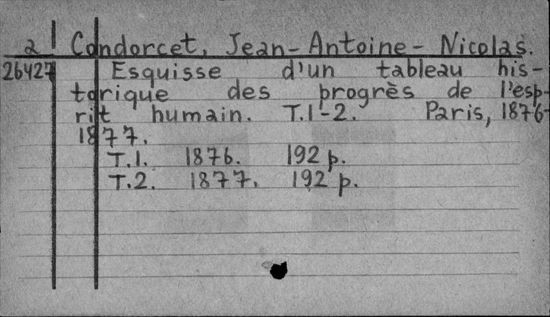 2 Condorcet, Jean-Antoine-Nicolas.
26427 Esquisse d'un tableau his-
torique des progrès de l'esp-
rit humain. T.1-2. Paris, 1876-
1877.
T.1. 1876. 192 p.
T.2. 1877. 192 p.